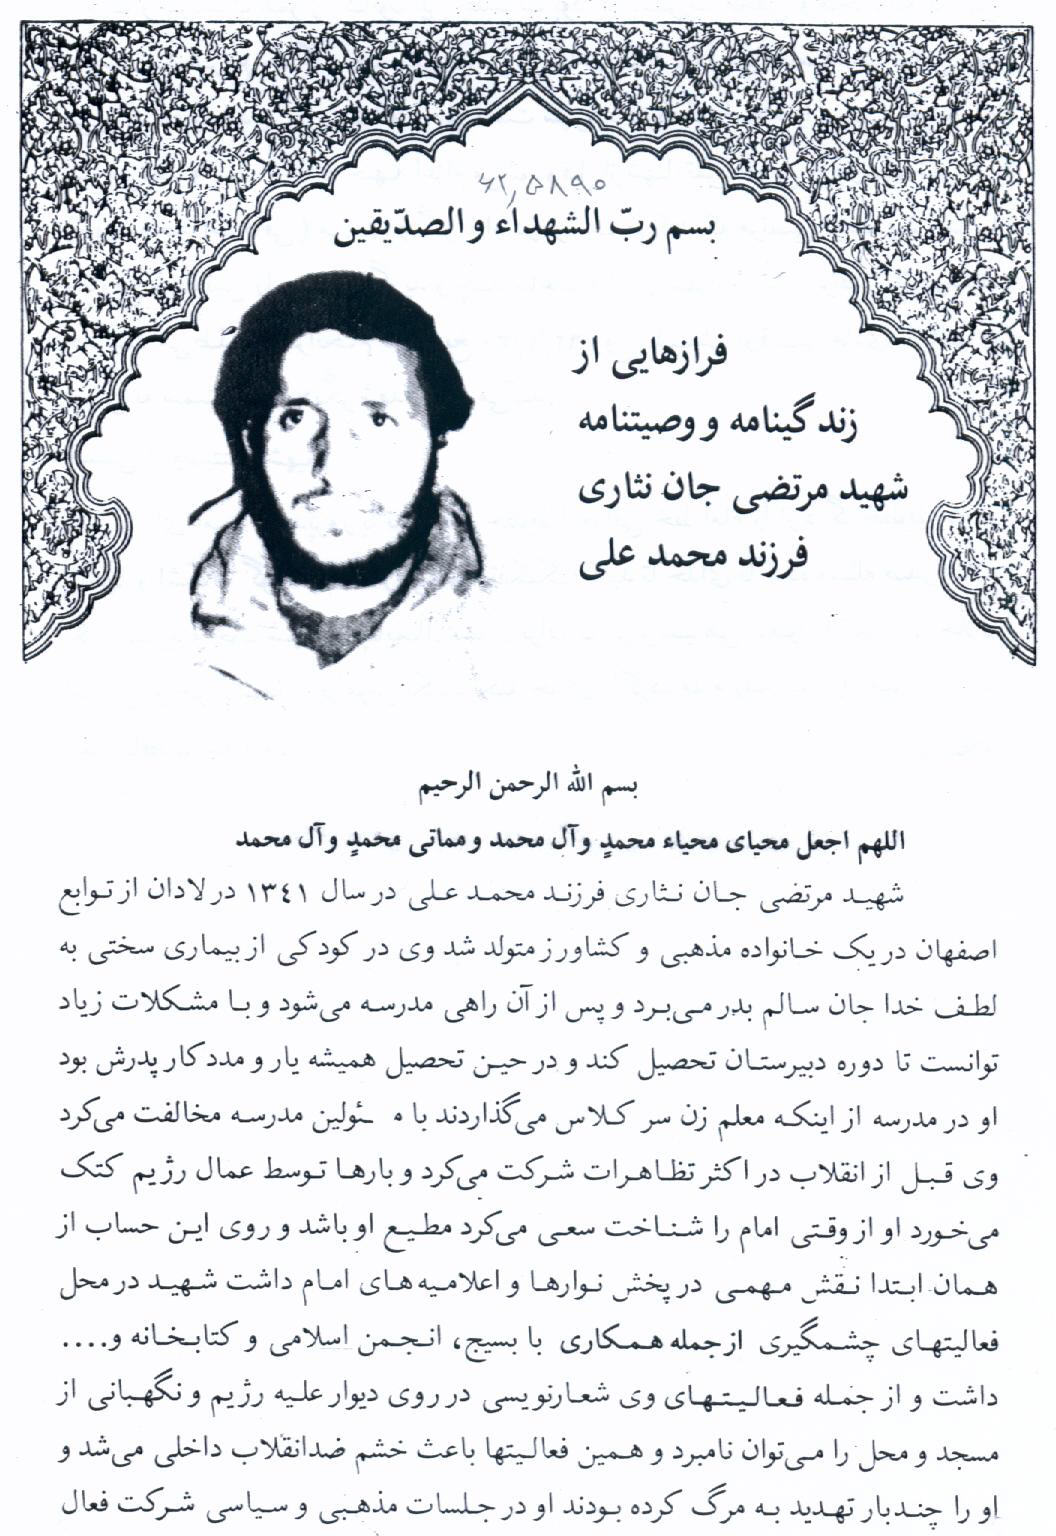 ۶۲٫۵۸۹۰
بسم ربّ الشهداء و الصدّیقین
فرازهایی از
زندگینامه و وصیتنامه
شهید مرتضی جان نثاری
فرزند محمد علی
بسم الله الرحمن الرحیم
اللهم اجعل محیای محیاء محمدٍ وآل محمد ومماتی محمدٍ وآل محمد
شهید مرتضی جان نثاری فرزند محمد علی در سال ۱۳٤۱ در لادان از توابع
اصفهان در یک خانواده مذهبی و کشاورز متولد شد وی در کودکی از بیماری سختی به
لطف خدا جان سالم بدر می‌برد و پس از آن راهی مدرسه می‌شود و با مشکلات زیاد
توانست تا دوره دبیرستان تحصیل کند و در حین تحصیل همیشه یار و مددکار پدرش بود
او در مدرسه از اینکه معلم زن سر کلاس می‌گذاردند با مسئولین مدرسه مخالفت می‌کرد
وی قبل از انقلاب در اکثر تظاهرات شرکت می‌کرد و بارها توسط عمال رژیم کتک
می‌خورد او از وقتی امام را شناخت سعی می‌کرد مطیع او باشد و روی این حساب از
همان ابتدا نقش مهمی در پخش نوارها و اعلامیه‌های امام داشت شهید در محل
فعالیتهای چشمگیری از جمله همکاری با بسیج، انجمن اسلامی و کتابخانه و....
داشت و از جمله فعالیتهای وی شعارنویسی در روی دیوار علیه رژیم و نگهبانی از
مسجد و محل را می‌توان نامبرد و همین فعالیتها باعث خشم ضدانقلاب داخلی می‌شد و
او را چندبار تهدید به مرگ کرده بودند او در جلسات مذهبی و سیاسی شرکت فعال